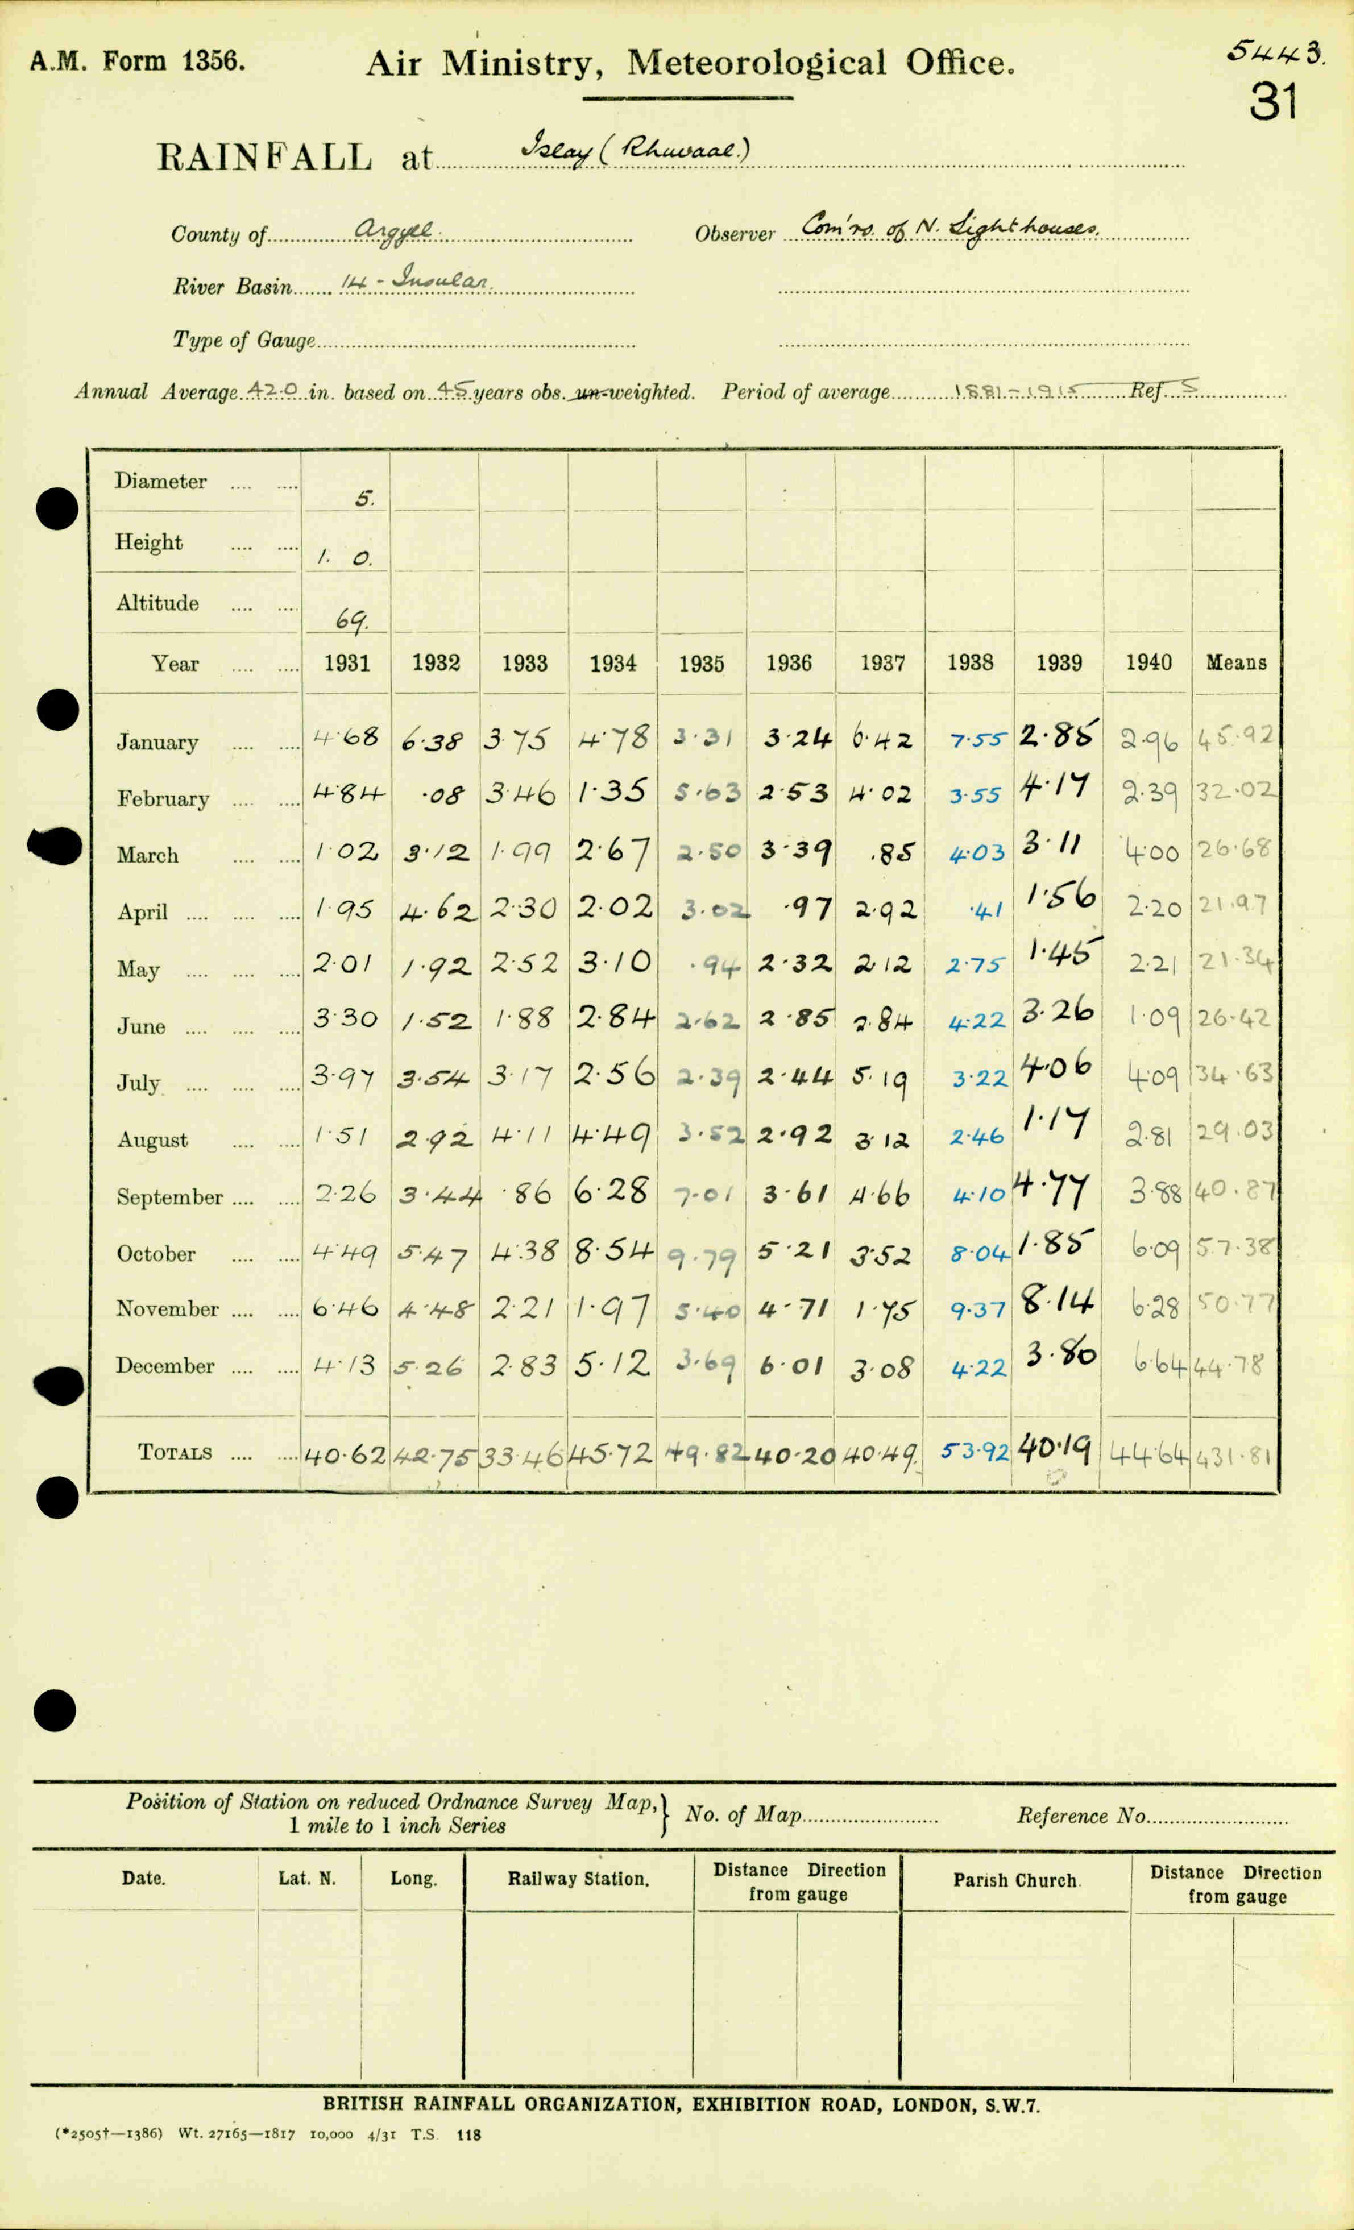 A.M. Form 1356.
Air Ministry, Meteorological Office.
5443.
31
RAINFALL at Islay (Rhuvaal.)
County of Argyll. Observer Com'rs of N. Lighthouses.
River Basin 14 - Insular.
Type of Gauge
Annual Average 42.0 in. based on 45 years obs. un-weighted. Period of average 1881-1915 Ref. S
Diameter 5.
Height 1. 0.
Altitude 69.
Year 1931 1932 1933 1934 1935 1936 1937 1938 1939 1940 Means
January 4.68 6.38 3.75 4.78 3.31 3.24 6.42 7.55 2.85 2.96 45.92
February 4.84 .08 3.46 1.35 5.63 2.53 4.02 3.55 4.17 2.39 32.02
March 1.02 3.12 1.99 2.67 2.50 3.39 .85 4.03 3.11 4.00 26.68
April 1.95 4.62 2.30 2.02 3.02 .97 2.92 .41 1.56 2.20 21.97
May 2.01 1.92 2.52 3.10 .94 2.32 2.12 2.75 1.45 2.21 21.34
June 3.30 1.52 1.88 2.84 2.62 2.85 2.84 4.22 3.26 1.09 26.42
July 3.97 3.54 3.17 2.56 2.39 2.44 5.19 3.22 4.06 4.09 34.63
August 1.51 2.92 4.11 4.49 3.52 2.92 3.12 2.46 1.17 2.81 29.03
September 2.26 3.44 .86 6.28 7.01 3.61 4.66 4.10 4.77 3.88 40.87
October 4.49 5.47 4.38 8.54 9.79 5.21 3.52 8.04 1.85 6.09 57.38
November 6.46 4.48 2.21 1.97 5.40 4.71 1.75 9.37 8.14 6.28 50.77
December 4.13 5.26 2.83 5.12 3.69 6.01 3.08 4.22 3.80 6.64 44.78
TOTALS 40.62 42.75 33.46 45.72 49.82 40.20 40.49. 53.92 40.19 44.64 431.81
Position of Station on reduced Ordnance Survey Map, 1 mile to 1 inch Series } No. of Map Reference No.
Date. Lat. N. Long. Railway Station. Distance Direction from gauge Parish Church. Distance Direction from gauge
BRITISH RAINFALL ORGANIZATION, EXHIBITION ROAD, LONDON, S.W.7.
(*2505†—1386) Wt. 27165—1817 10,000 4/31 T.S. 118